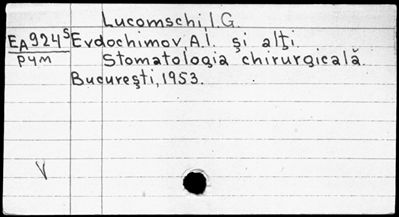 Lucomschi, I.G.
EA924⁵ Evdochimov, A.I. şi alţi.
рум Stomatologia chirurgicală.
Bucureşti, 1953.
V